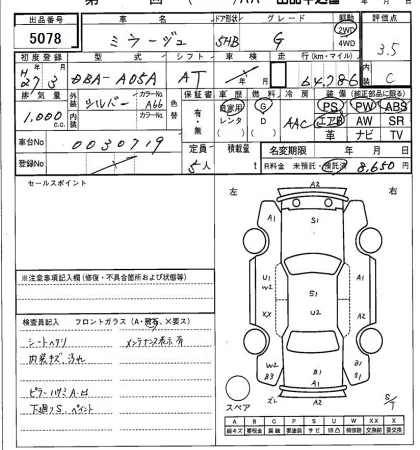 出品番号 車名 ドア形状 グレード 駆動 評価点
5078 ミラージュ 5HB G 2WD 4WD 3.5
初度登録 型式 シフト 車検 走行(km・マイル) 内装
H27.3 DBA-A05A AT 64,786 C
排気量 外装 カラーNo. 色替 保証書 車歴 燃料 冷房 装備(純正部品に限る)
1,000 c.c. シルバー A66 有・無 自家用 レンタ G D AAC PS PW ABS
内装 カラーNo. エアB AW SR
革 ナビ TV
車台No 0030719 定員 積載量 名変期限 年 月 日
登録No 5人 t R料金 未預託・預託済 8,650円
セールスポイント
左 右
A2
A1 S1 A1
U1 W2 S1
XX U2
W2 B3 A1 B1 S1
B1
A2
※注意事項記入欄(修復・不具合箇所および状態等)
検査員記入 フロントガラス(A・飛石、×要ス)
シートヘタリ メンテナンス表示有
内装キズ、汚れ
下廻りS、ペイント
スペア
A B C P S U W X XX
線キズ 要板金 腐蝕 要塗装 サビ 凹凸 補修跡 交換跡 要交換